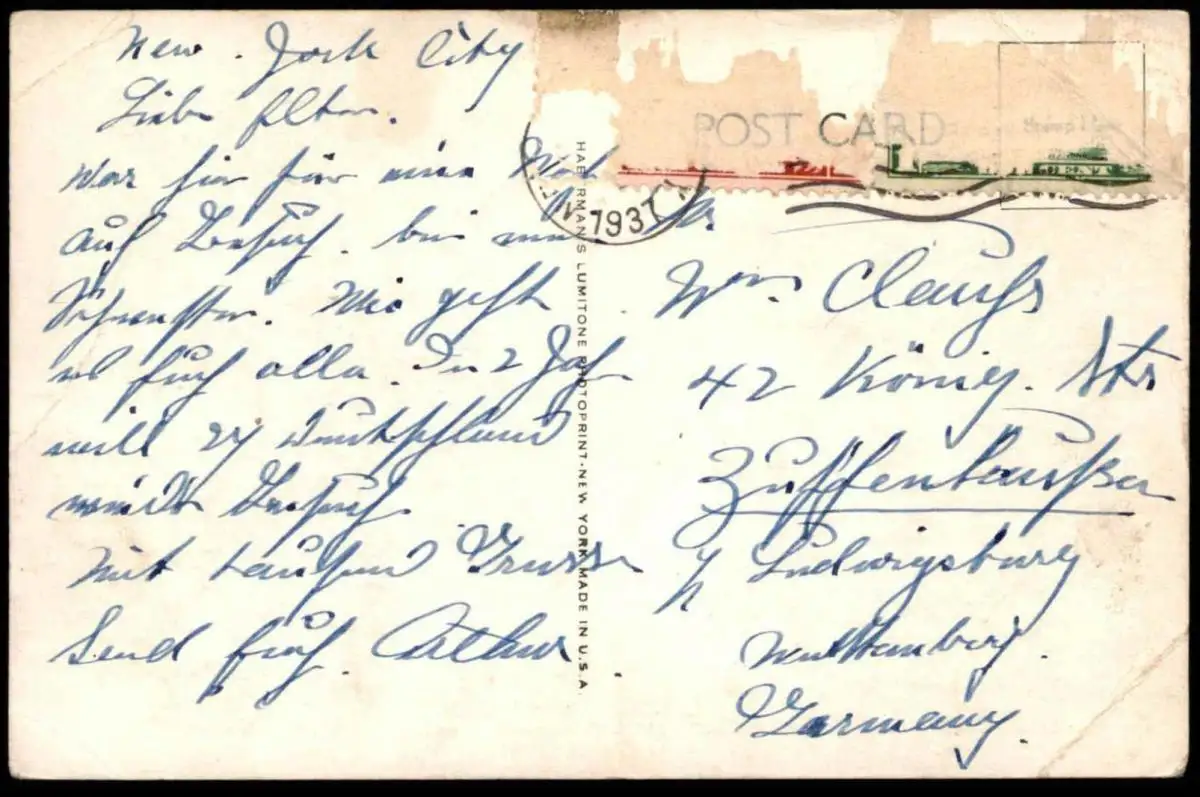 New York City
Liebe Eltern.
War hier für eine Woch
auf Besuch bei meine
Wie geht
es Euch alle. In 2 Jahr
will ich Deutschland
wieder Besuch
Mit tausend Grusse
Send Euch. Arthur
HABERMAN'S LUMITONE PHOTOPRINT·NEW YORK MADE IN U.S.A.
POST CARD
1937
Wm. Clauss
42 König. Str
Zuffenhausen
Ludwigsburg
Wurttemberg.
Germany.